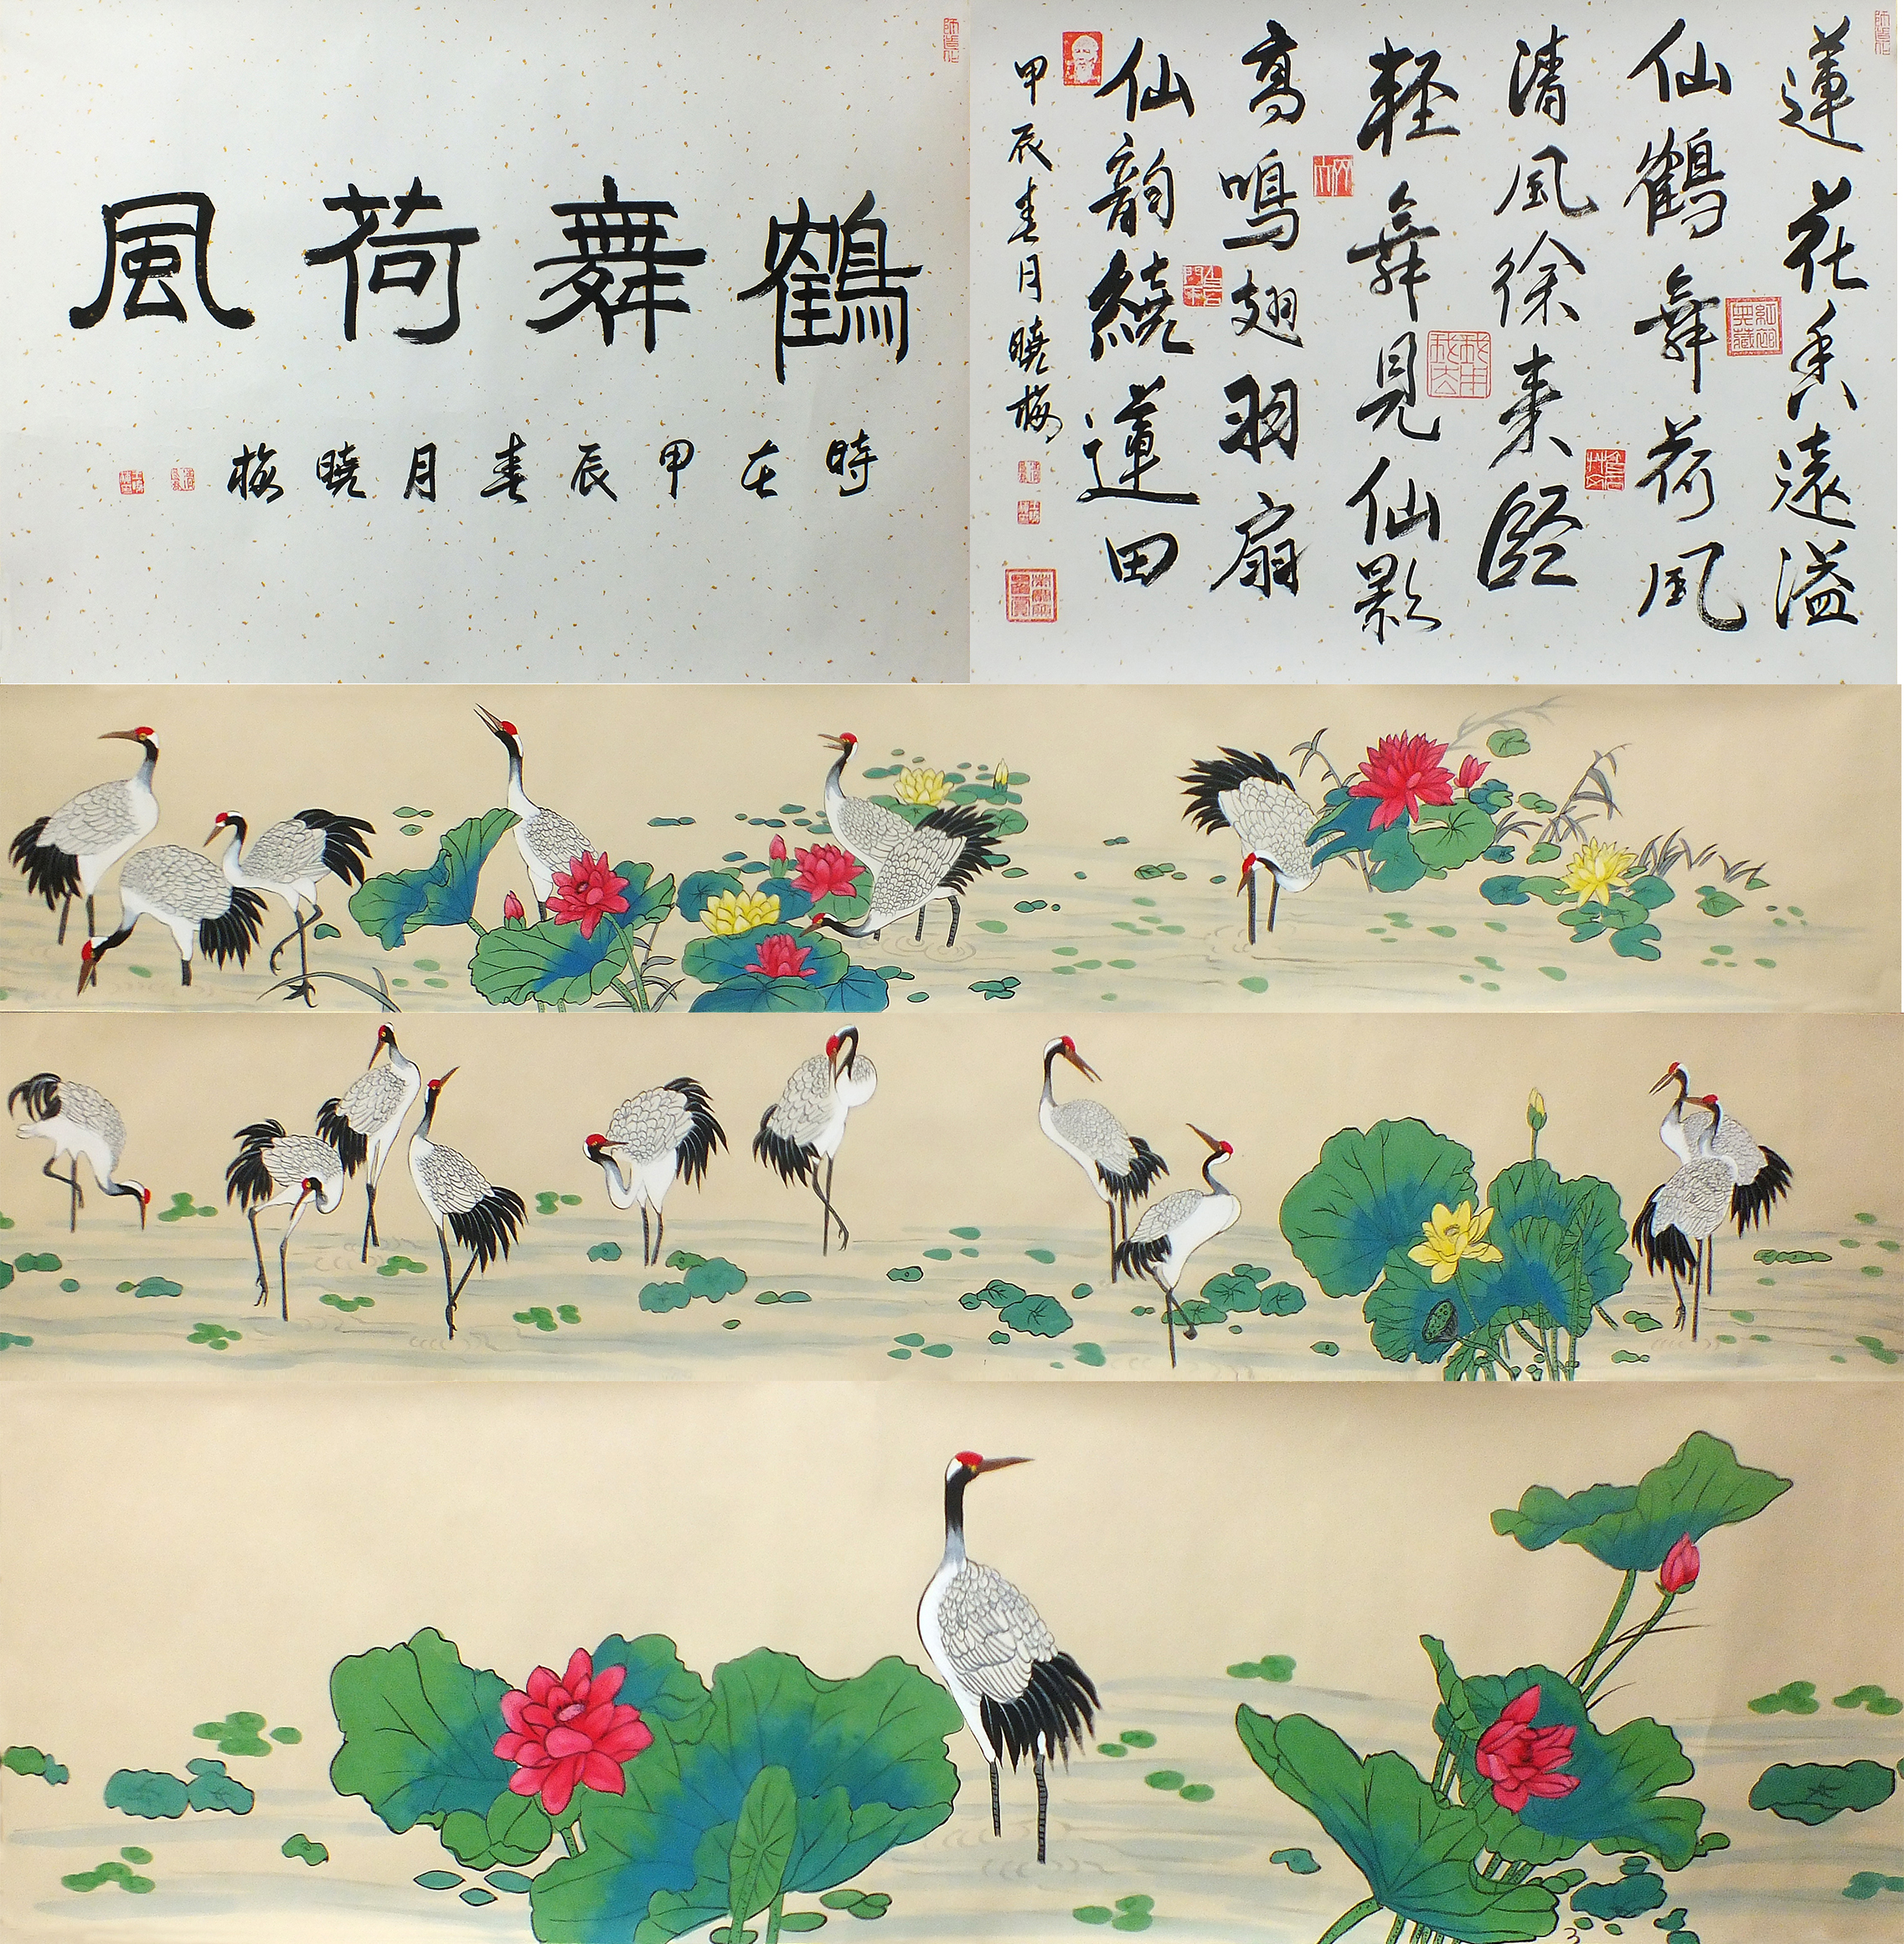 鶴舞荷風
時在甲辰春月曉梅
蓮花香遠溢
仙鶴舞荷風
清風徐来
軽舞見仙影
高鳴翅羽扇
仙韵繞蓮田
甲辰春月曉梅